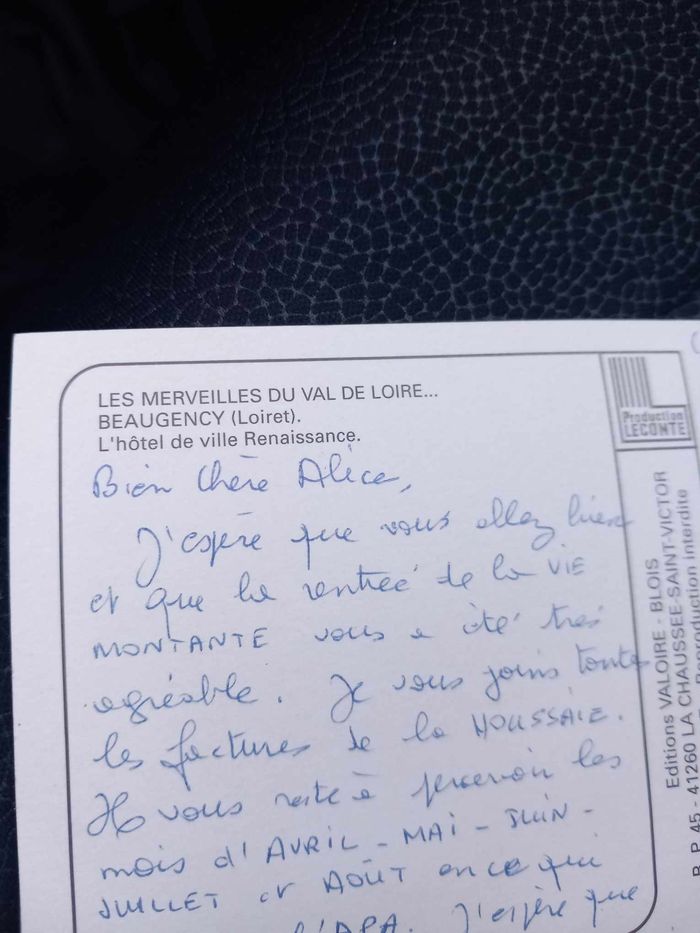 LES MERVEILLES DU VAL DE LOIRE...
BEAUGENCY (Loiret).
L'hôtel de ville Renaissance.
Bien Chère Alice,
J'espère que vous allez bien
et que la rentrée de la VIE
MONTANTE vous a été très
agréable. Je vous joins toutes
les factures de la HOUSSAIE.
Il vous reste à percevoir les
mois d'AVRIL - MAI - JUIN -
JUILLET et AOÛT en ce qui
l'APA. J'espère que
Production
LECONTE
Editions VALOIRE - BLOIS
B.P. 45 - 41260 LA CHAUSSEE-SAINT-VICTOR
Reproduction interdite